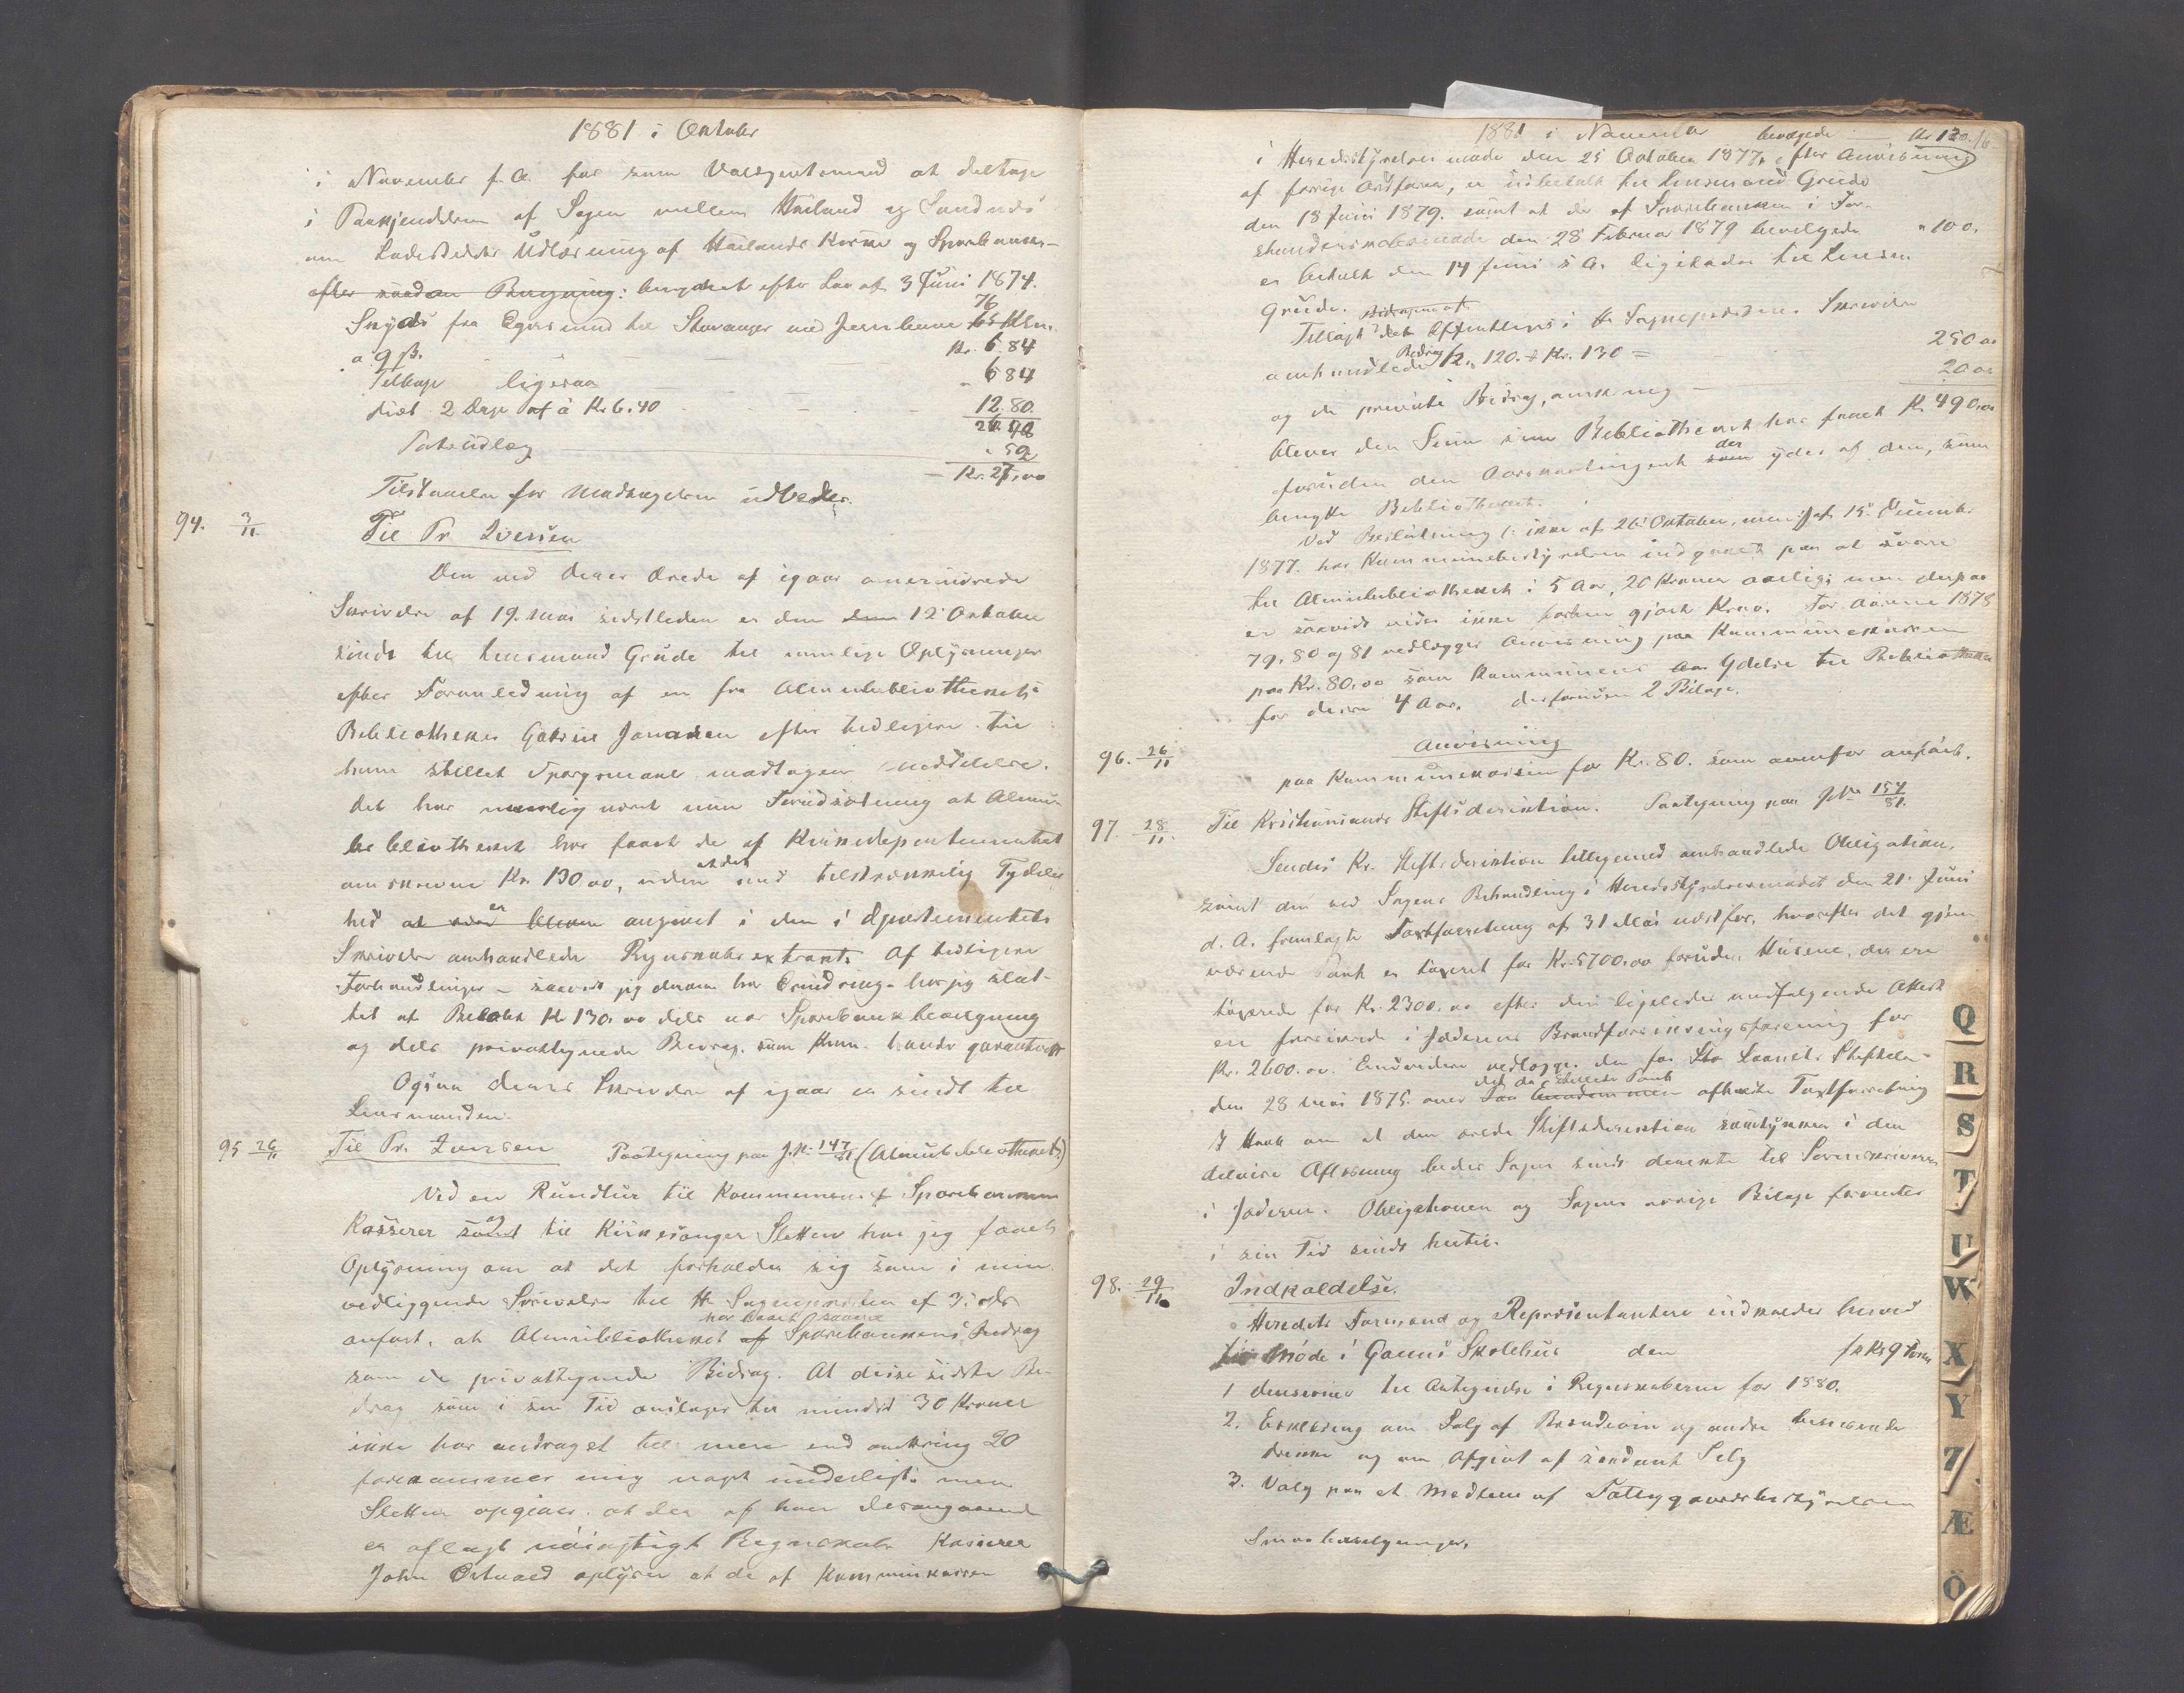 1881 i Oktober
i November f. A. for som Voldgiftsmand at deltage
i Paakjendelsen af Sagen mellem Høiland og Sandnæs
om Ladestedets Udløsning af Høilands Korn og Sparebank-
efter saadan Beregning: beregnet efter Lov af 3 Juni 1874.
76
Skyds fra Egersund til Stavanger med Jernbane 65 Klm.
a 9 ß. Kr. 6.84
Tilbage ligesaa " 6 84
diæt 2 Dage af à Kr 6.40 12.80.
26.48
Portoudlæg " 52
Kr. 27,00
Tilstaaelse for Modtagelsen udbedes.
94. 3/11. Til Pr. Iversen
Den ved Deres Ærede af igaar omerindrede
Skrivelse af 19. Mai sidstleden er den 12 Oktober
sendt til Lensmand Grude til mulige Oplysninger
efter Foranledning af en fra Almuebibliothekets
Bibliotheker Gabriel Jonassen efter tidligere til
ham stillet Spørgsmaal modtagen Meddelelse.
det har nemlig været min Forudsætning at Almue-
bibliotheket har faaet de af Kirkedepartementet
at det
omskrevne Kr. 130 00, uden med tilstrækkelig Tydelig
er
hed at være bleven angivet i den i Departementets
Skrivelse omhandlede Regnskabsextrakt. Af tidligere
Forhandlinger – saavidt jeg derom har Erindring – har jeg slut-
tet at Beløbet Kr 130.00 dels var Sparebankbevilgning
og dels privattegnede Bidrag, som Kom. havde garanteret
Ogsaa Deres Skrivelse af igaar er sendt til
Lensmanden.
95 26/11 Til Pr. Iversen Paategning paa J.N. 147/81 (Almuebibliotheket)
Ved en Rundtur til Kommunens & Sparebankens
og
Kasserer samt til Kirkesanger Sletten har jeg faaet
Oplysning om at det forholder sig som i min
vedliggende Skrivelse til Hr Sogneprésten af 3. ds
har faaet saavel
anført, at Almuebibliotheket af Sparebankens Bidrag
som de privattegnede Bidrag. At disse sidste Bi-
drag som i sin Tid ansloges til mindst 30 Kroner
ikke har andraget til mere end omkring 20
forekommer mig noget underligt; men
Sletten opgiver, at der af ham desangaaende
er aflagt nöiagtigt Regnskab. Kasserer
John Østraad oplyser at de af Kommunekassen
1881 i November bevilgede Kr 120.
i Herredsstyrelsens møde den 25 Oktober 1877, efter Anvisning
af forrige Ordfører, er udbetalt til Lensmand Grude
den 18 Juni 1879. samt at de af Sparebanken i For-
standerskabsmøde den 28 Februar 1879 bevilgede " 100.
er betalt den 14 Juni s. A. ligeledes til Lensm.
Grude.
Tillagt det Offentliges i Hr Sogneprestens Skrivelse
omhandlede Bidrag Kr. 120. + Kr. 130 = 250 00
og de private Bidrag, omkring 20 00
bliver den Sum som Bibliotheket har faaet Kr 490,00
der
foruden den Aarskontingent som ydes af dem, som
benytte Bibliotheket.
Ved Beslutning (: ikke af 26 Oktober, men :) af 15 December
1877. har Kommunebestyrelsen indgaaet paa at svare
til Almuebibliotheket i 5 Aar, 20 Kroner aarlig; men derpaa
er saavidt vides ikke forhen gjort Krav. For Aarene 1878
79, 80 og 81 vedlægges Anvisning paa Kommunekassen
paa Kr. 80.00 som Kommunens Ydelse til Bibliotheket
for disse 4 Aar. desforuden 2 Bilage.
96. 26/11 Anvisning
paa Kommunekassen for Kr. 80. som ovenfor anført.
97. 28/11. Til Kristiansands Stiftsdirektion. Paategning paa JNo 154/81.
Sendes Kr. Stiftsdirektion tilligemed omhandlede Obligation,
samt den ved Sagens Behandling i Herredsstyrelsesmødet den 21. Juni
d. A. fremlagte Taxtforretning af 31 Mai næstfør, hvorefter det gjen-
værende Pant er taxeret for Kr. 5700.00 foruden Husene, der ere
taxerede for Kr. 2300.00 efter den ligeledes medfølgende Attest
er forsikrede i Jæderens Brandforsikringsforening for
Kr. 2600.00. Endvidere vedlægges den for Sto Laanets Stiftelse
det da stillede Pant
den 28 Mai 1875. over afholdte Taxtforretning
I Haab om at den ærede Stiftsdirektion samtykker i den
delvise Afløsning bedes Sagen sendt directe til Sorenskriveren
i Jæderen. Obligationen og Sagens øvrige Bilage forventes
i sin Tid sendt hertil.
98. 29/11 Indkaldelse.
Herredets Formænd og Repræsentantere indkaldes herved
til Møde i Gauns Skolehus den fm Kl 9 form
1 decisioner til Antegnelse i Regnskaberne for 1880.
2. Erklæring om Salg af Brændevin og andre berusende
drikke og om Afgivt af saadant Salg
3. Valg paa et Medlem af Fattiggaardsbestyrelsen
Smaabevilgninger.
Q
R
S
T
U
W
X
Y
Z
Æ
Ö